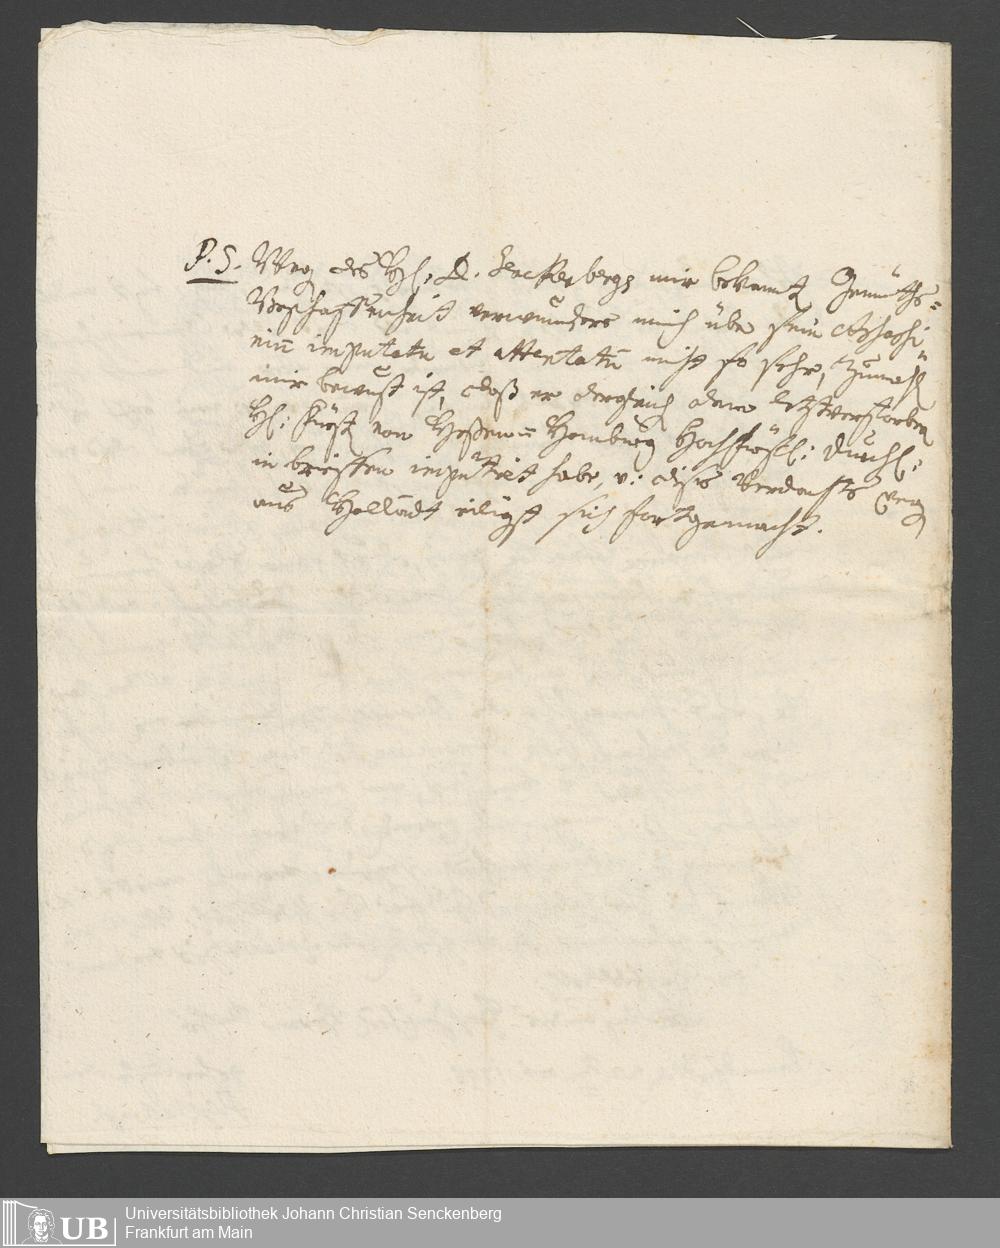 P. S. Weg. des H. D. Senckenbergs mir bekant. Gemüths=
Beschaffenheit verwundere mich über sein
imputatu et attentatu nicht so sehr, zumahl
mir bewust ist, daß er dergleich dem letztverstorben
H: Fürst. von Heßen Homburg Hochfürstl: Durchl:
in brieffen imputiret habe, v: dises Verdachts weg.
aus Hollandt eiligst sich fortgemacht.
UB Universitätsbibliothek Johann Christian Senckenberg
Frankfurt am Main